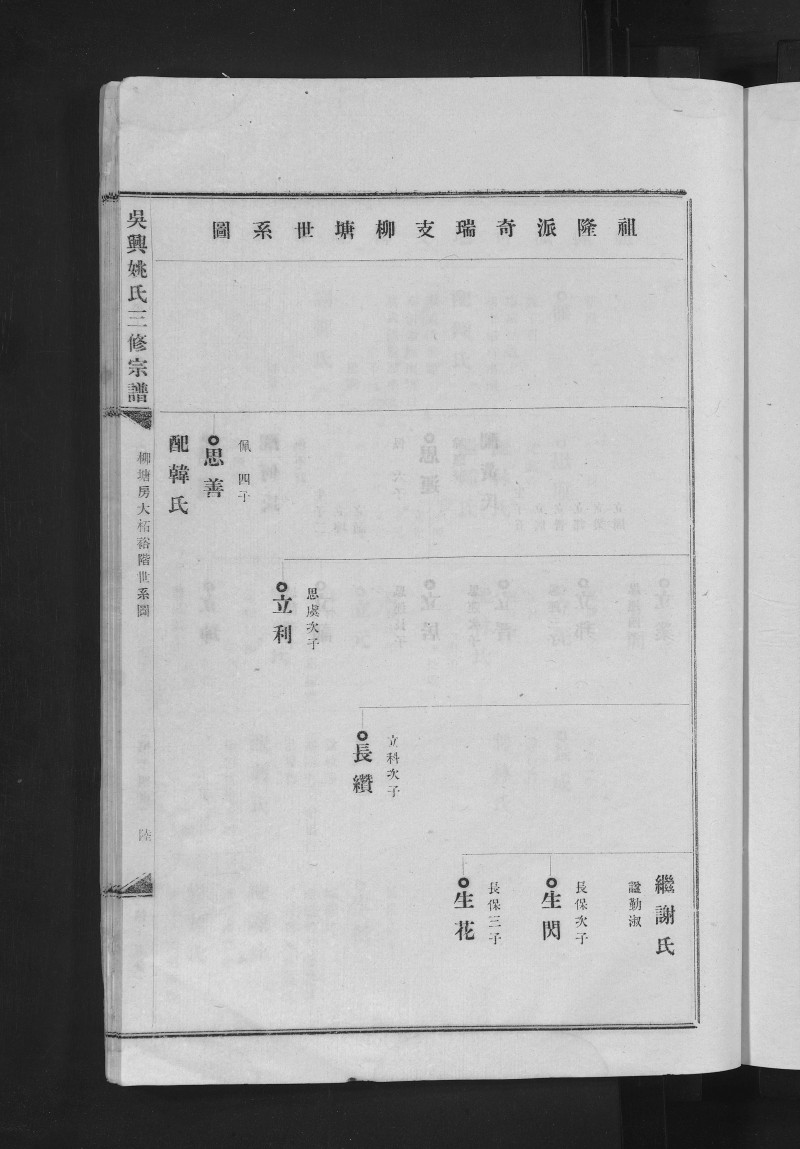 祖隆派奇瑞支柳塘世系圖
繼謝氏
諡勤淑
長保次子
生閃
長保三子
生花
立科次子
長纘
思虞次子
立利
佩四子
思善
配韓氏
吳興姚氏三修宗譜
柳塘房大栢裕階世系圖
陸